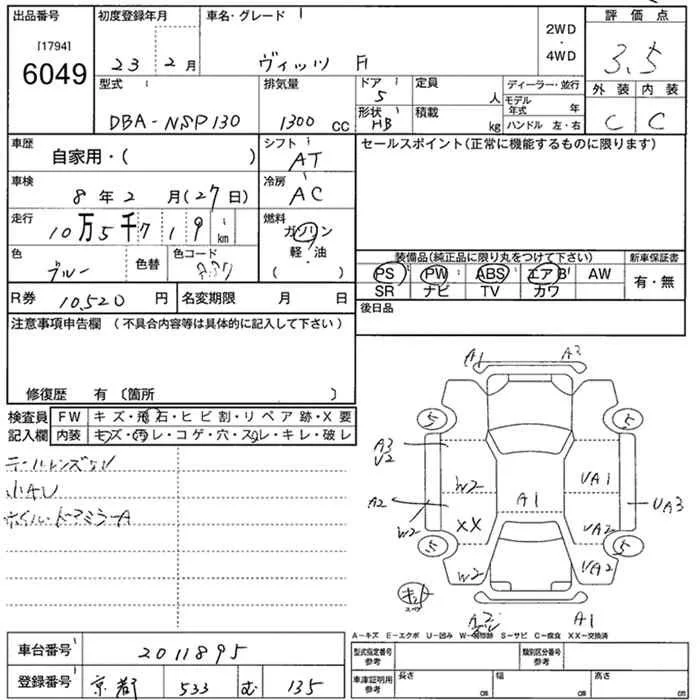 出品番号
[1794]
6049
初度登録年月
23 2 月
車名・グレード
ヴィッツ F
2WD
・
4WD
評価点
3.5
外装 内装
C C
型式
DBA-NSP130
排気量
1300 CC
ドア
5
形状
HB
定員
人
積載
kg
ディーラー・並行
モデル年式 年
ハンドル 左・右
車歴
自家用・( )
シフト
AT
車検
8 年 2 月(27 日)
冷房
AC
走行
10 万 5 千 7 1 9 km
燃料
ガソリン
軽・油
( )
色
ブルー
色替
色コード
R券 10,520 円
名変期限 月 日
セールスポイント(正常に機能するものに限ります)
装備品(純正品に限り丸をつけて下さい)
新車保証書
PS PW ABS エアB AW
SR ナビ TV カワ
有・無
後日品
注意事項申告欄 (不具合内容等は具体的に記入して下さい)
修復歴 有 〔箇所 〕
検査員
記入欄
FW キズ・飛石・ヒビ割・リペア跡・X要
内装 キズ・汚レ・コゲ・穴・スレ・キレ・破レ
テールレンズ
小キレ
ホイル・ドアミラーA
A1 A3
5 5
A3
V2
W2
UA1
A2
W2
A1
UA3
XX
UA2
5 5
W2
UA2
A2
A1
A-キズ E-エクボ U-凹み W-補修跡 S-サビ C-腐食 XX-交換済
車台番号 2011895
登録番号 京都 533 む 135
型式指定番号
参考
類別区分番号
参考
車庫証明用
参考
長さ cm
幅 cm
高さ cm